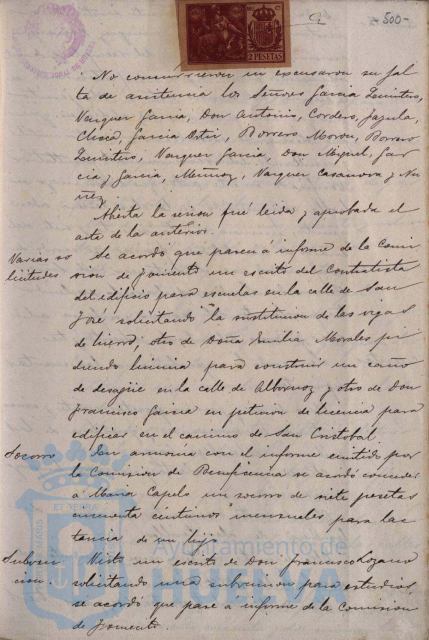 2 - 500-
2 PESETAS
No concurrieron ni escusaron su fal
ta de asistencia los Señores Garcia Quintero,
Vazquez Garcia, Don Antonio, Cordero, Cazula,
Checa, Garcia Ortiz, Borrero Moron, Borrero
Quintero, Vazquez Garcia, Don Miguel, Gar
cia y Garcia, Muñoz, Vazquez Casanova y Nu
ñez.
Abierta la sesion fué leida y aprobada el
acta de la anterior.
Varias so
licitudes
Se acordó que pasen á informe de la Comi
sion de Fomento un escrito del Contratista
del edificio para escuelas en la calle de San
José solicitando la sustitucion de las vigas
de hierro, otro de Doña Emilia Morales pi
diendo licencia para construir un caño
de desagüe en la calle de Albornoz y otro de Don
Francisco Garcia en peticion de licencia para
edificar en el camino de San Cristobal.
Socorro
En armonia con el informe emitido por
la Comision de Beneficencia se acordó conceder
á Maria Capelo un socorro de siete pesetas
cincuenta centimos mensuales para lac
tancia de un hijo.
Subven
cion.
Visto un escrito de Don Francisco Lozano
solicitando una subvencion para estudios
se acordó que pase a informe de la Comision
de Fomento.
Ayuntamiento de
HUELVA